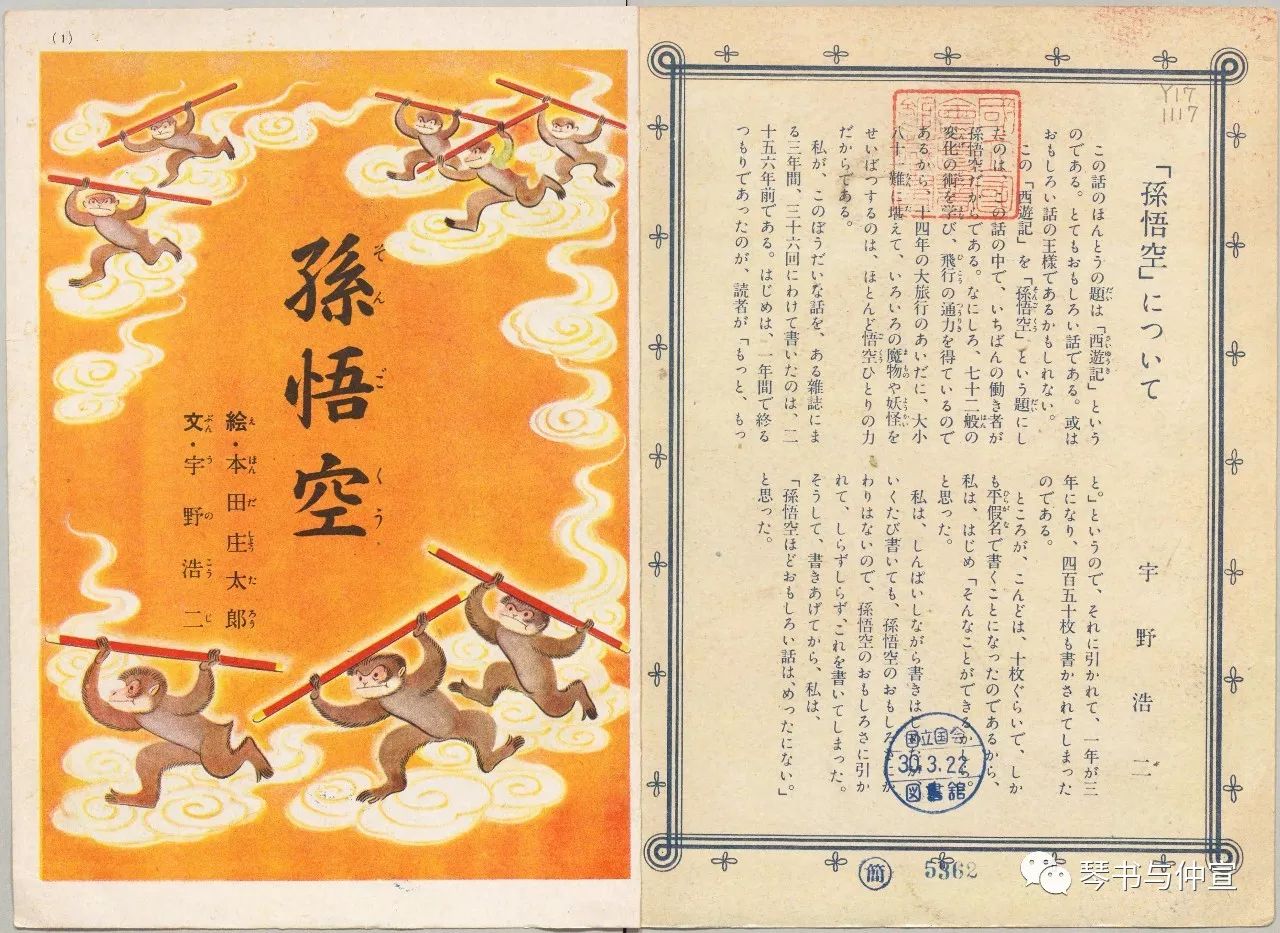 「孫悟空」について
宇野浩二
この話のほんとうの題は「西遊記」という
のである。とてもおもしろい話である。或は
おもしろい話の王様であるかもしれない。
この「西遊記」を「孫悟空」という題にし
たのは、この話の中で、いちばんの働き者が
孫悟空だからである。なにしろ、七十二般の
変化の術を学び、飛行の通力を得ているので
あるから、十四年の大旅行のあいだに、大小
八十一難に堪えて、いろいろの魔物や妖怪を
せいばつするのは、ほとんど悟空ひとりの力
だからである。
私が、このぼうだいな話を、ある雑誌にま
る三年間、三十六回にわけて書いたのは、二
十五六年前である。はじめは、一年間で終る
つもりであったのが、読者が「もっと、もっ
と。」というので、それに引かれて、一年が三
年になり、四百五十枚も書かされてしまった
のである。
ところが、こんどは、十枚ぐらいで、しか
も平假名で書くことになったのであるから、
私は、はじめ「そんなことができるかしら。
と思った。
私は、しんぱいしながら書きはじ
いくたび書いても、孫悟空のおもしろさにか
わりはないので、孫悟空のおもしろさに引か
れて、しらずしらず、これを書いてしまった。
そうして、書きあげてから、私は、
「孫悟空ほどおもしろい話は、めったにない。」
と思った。
Y17
1117
国立国会
30.3.22
図書館
簡
5362
(1)
孫悟空
そんごくう
絵・本田庄太郎
え ほんだしょうたろう
文・宇野浩二
ぶん うのこうじ
琴书与仲宣